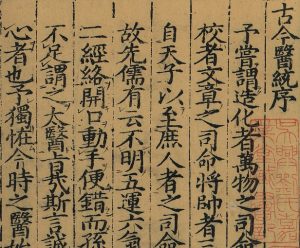 古今醫統序
予嘗謂造化者萬物之司命將帥者三
校者文章之司命
自天子以至庶人者之司命
故先儒有云不明五運六氣
二經絡開口動手便錯而孫
不足謂之太醫旨哉斯言誠
心者也予獨恠今時之醫